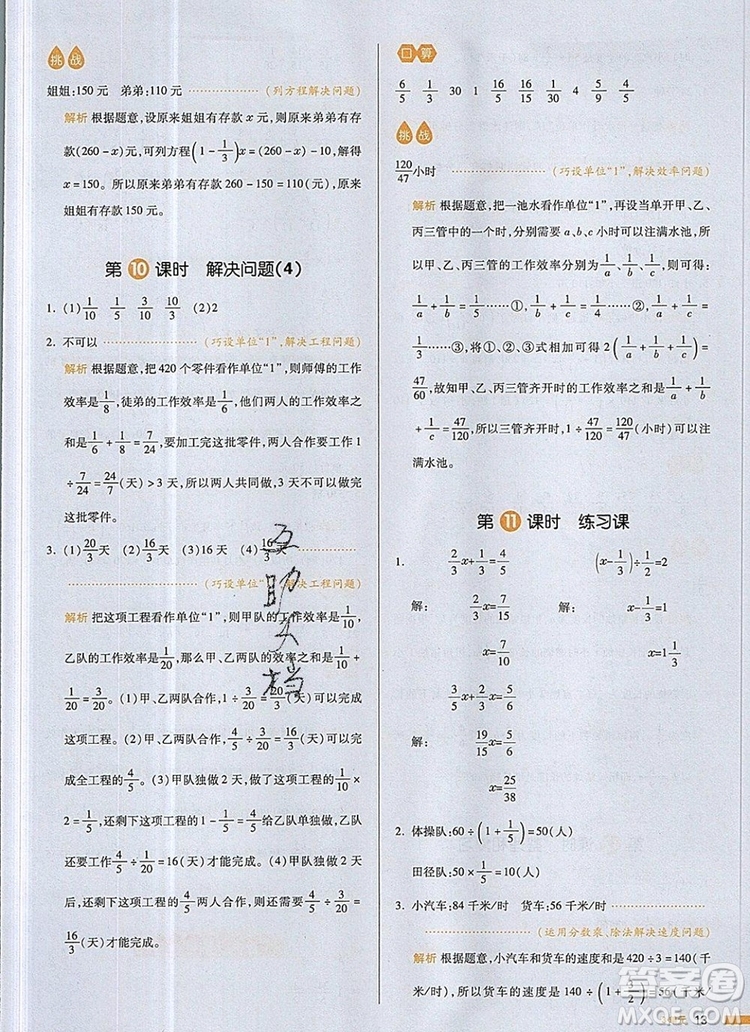 挑战
姐姐:150元 弟弟:110元 ………………(列方程解决问题)
解析 根据题意,设原来姐姐有存款x元,则原来弟弟有存
款(260-x)元,可列方程(1-1/3)x=(260-x)-10,解得
x=150。所以原来弟弟有存款 260-150=110(元),原来
姐姐有存款150元。
第10课时 解决问题(4)
1. (1)1/10 1/5 3/10 10/3 (2)2
2. 不可以 ………………(巧设单位“1”,解决工程问题)
解析 根据题意,把420个零件看作单位“1”,则师傅的工作
效率是1/6,徒弟的工作效率是1/8,他们两人的工作效率之
和是1/6+1/8=7/24,要加工完这批零件,两人合作要工作1
÷7/24=24/7(天)>3天,所以两人共同做,3天不可以加工完
这批零件。
3. (1)20/3天 (2)16/3天 (3)16天 (4)16/3天 ………………
………………(巧设单位“1”,解决工程问题)
解析 把这项工程看作单位“1”,则甲队的工作效率是1/10,
乙队的工作效率是1/20,那么甲、乙两队的工作效率和是1/10+
1/20=3/20。(1)甲、乙两队合作,1÷3/20=20/3(天)可以完成
这项工程。(2)甲、乙两队合作,4/5÷3/20=16/3(天)可以完
成全工程的4/5。(3)甲队独做2天,做了这项工程的1/10×
2=1/5,还剩下这项工程的1-1/5=4/5,剩下的由乙队做,还
要工作4/5÷1/20=16(天)才能完成。(4)甲队独做2天,做
了这项工程的1/10×2=1/5,还剩下这项工程的1-1/5=
4/5,还剩下的两队合作,还要工作4/5÷(1/10+1/20)=4/5÷3/20=
16/3(天)才能完成。
口算
6/5 6/5 30 1 1/16 1/16 4 5/9 4/5
挑战
120/47小时 ………………(巧设单位“1”,解决效率问题)
解析 根据题意,把一池水看作单位“1”,当单开甲、乙、
丙三管中的一个时,分别需要a、b、c小时可以注满水池,
所以甲、乙、丙三管的工作效率分别为1/a、1/b、1/c,则
1/a+1/b=1/5……①,1/a+1/c=1/4……②,1/b+1/c=
1/3……③,将①、②、③式相加可得2(1/a+1/b+1/c)=
47/60,故知甲、乙、丙三管齐开时的工作效率和是1/a+1/b
+1/c=47/120,所以三管齐开时1÷47/120=120/47(小时)可以注
满水池。
第11课时 练习课
1. 2/3x+1/3=4/5 (x-1/3)÷1/2=2
解: 2/3x=7/15 解: x-1/3=1
x=7/10 x=1 1/3
3/5x+2/3x=5/6
解: 19/15x=5/6
x=25/38
2. 体操队:60÷(1+1/5)=50(人)
田径队:60-50=10(人)
3. 小汽车:84千米/时 货车:56千米/时 ………………
………………(运用分数乘、除法解决速度问题)
解析 根据题意,小汽车和货车的速度是420÷3=140(千
米/时),所以货车的速度是140÷(1+1 1/2)=56(千米/
互助文档
答案圈
MXQE.COM
13